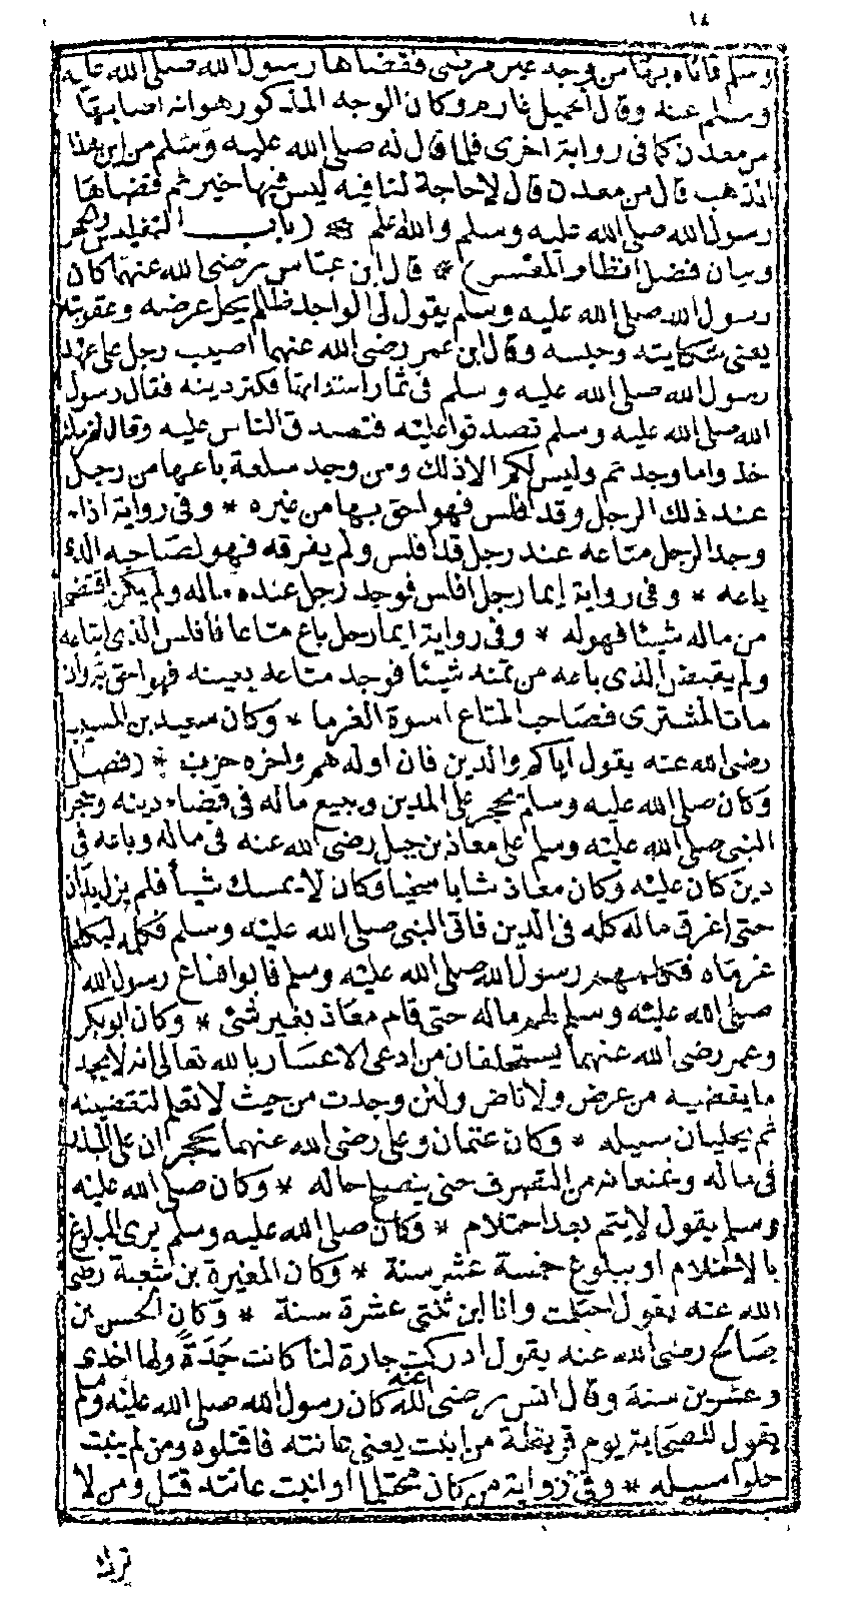 ١٨
وسلم فاتاه بها من وجه غير مرضي فقضاها رسول الله صلى الله عليه
وسلم عنه وقال الحميل غارم وكان الوجه المذكور هو انه اصابها
من معدن كما في رواية اخرى فلما قال له صلى الله عليه وسلم من اين هذا
الذهب قال من معدن قال لا حاجة لنا فيه ليس فيها خير ثم قضاها
رسول الله صلى الله عليه وسلم والله اعلم (باب التفليس والحجر
وبيان فضل انظار المعسر) * قال ابن عباس رضي الله عنهما كان
رسول الله صلى الله عليه وسلم يقول لي الواجد ظلم يحل عرضه وعقوبته
يعني شكايته وحبسه وقال ابن عمر رضي الله عنهما اصيب رجل على عهد
رسول الله صلى الله عليه وسلم في ثمار استدانها فكثر دينه فقال رسول
الله صلى الله عليه وسلم تصدقوا عليه فتصدق الناس عليه وقال لغرمائه
خذوا ما وجدتم وليس لكم الا ذلك ومن وجد سلعة باعها من رجل
عند ذلك الرجل وقد افلس فهو احق بها من غيره * وفي رواية اذا
وجد الرجل متاعه عند رجل قد افلس ولم يفرقه فهو لصاحبه الذي
باعه * وفي رواية ايما رجل افلس فوجد رجل عنده ماله ولم يكن اقتضى
من ماله شيئا فهو له * وفي رواية ايما رجل باع متاعا فأفلس الذي ابتاعه
ولم يقبض الذي باعه من ثمنه شيئا فوجد متاعه بعينه فهو احق به وان
مات المشتري فصاحب المتاع اسوة الغرما * وكان سعيد بن المسيب
رضي الله عنه يقول اياكم والدين فان اوله هم واخره حزن * (فصل)
وكان صلى الله عليه وسلم يحجر على المدين ويبيع ماله في قضاء دينه وحجر
النبي صلى الله عليه وسلم على معاذ بن جبل رضي الله عنه في ماله وباعه في
دين كان عليه وكان معاذ شابا سخيا وكان لا يمسك شيأ فلم يزل يدان
حتى اغرق ماله كله في الدين فاتى النبي صلى الله عليه وسلم فكلمه ليكلم
غرماه فكلمهم رسول الله صلى الله عليه وسلم فأبوا فباع رسول الله
صلى الله عليه وسلم لهم ماله حتى قام معاذ بغير شئ * وكان ابو بكر
وعمر رضي الله عنهما يستحلفان من ادعى الاعسار بالله تعالى انه لا يجد
ما يقضيه من عرض ولا ناض ولئن وجدت من حيث لا نعلم لتقضينه
ثم يخليان سبيله * وكان عثمان وعلى رضي الله عنهما يحجران على المبذر
في ماله ويمنعانه من التصرف حتى ينصلح حاله * وكان صلى الله عليه
وسلم يقول لا يتم بعد احتلام * وكان صلى الله عليه وسلم يرى البلوغ
بالاحتلام او ببلوغ خمسة عشر سنة * وكان المغيرة بن شعبة رضي
الله عنه يقول احتلمت وانا ابن ثنتى عشرة سنة * وكان الحسن بن
صالح رضي الله عنه يقول ادركت جارة لنا كانت جدة ولها احدى
وعشرين سنة وقال انس رضي الله عنه كان رسول الله صلى الله عليه وسلم
يقول للصحابة يوم قريظة من انبت يعني عانته فاقتلوه ومن لم ينبت
خلوا سبيله * وفي رواية من كان محتلما او انبت عانته قتل ومن لا
ترك